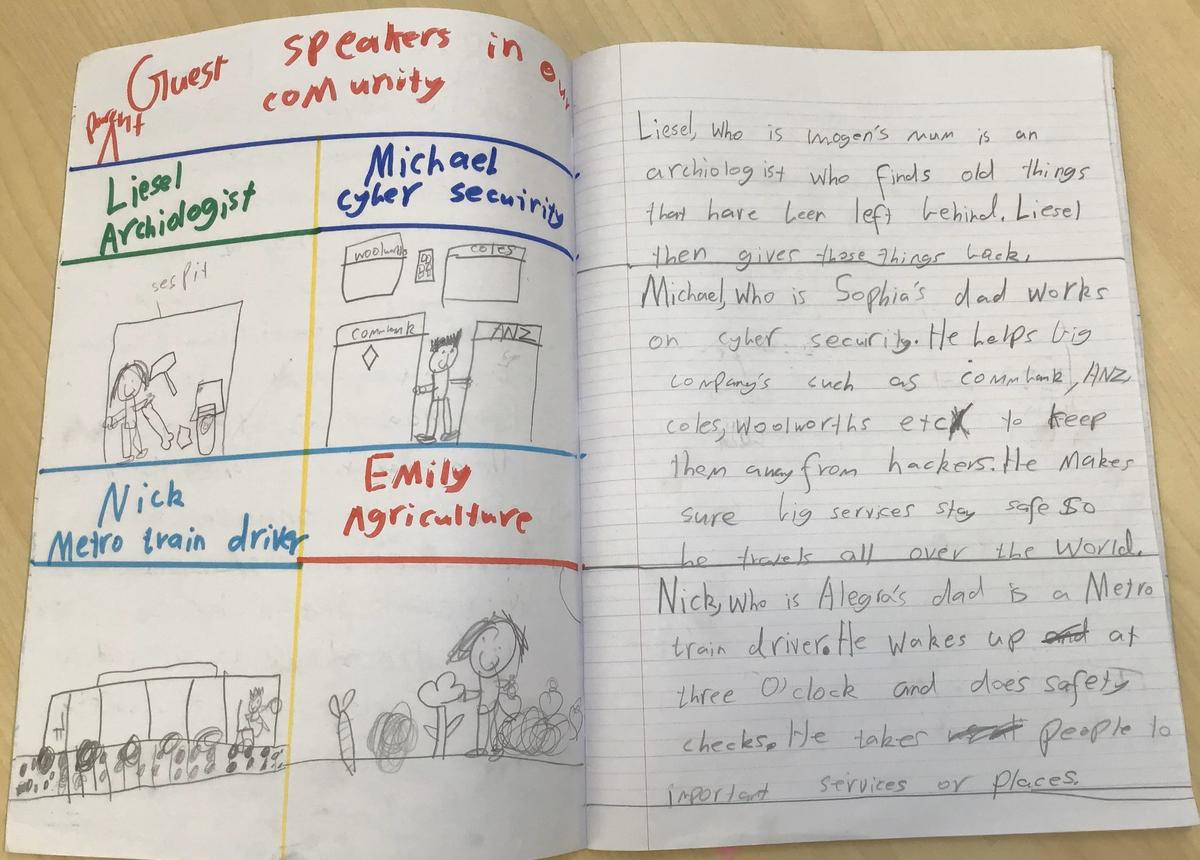 Guest speakers in our
parent
comunity
Liesel
Archiologist
Michael
cyber secuirity
sespit
woolworths
coles
commbank
ANZ
Nick
Metro train driver
Emily
Agriculture
Liesel, who is imogen's mum is an
archiologist who finds old things
that have been left behind. Liesel
then gives those things back.
Michael, who is Sophia's dad works
on cyber security. He helps big
company's such as commbank, ANZ,
coles, woolworths etc to keep
them away from hackers. He Makes
sure big services stay safe So
he travels all over the World.
Nick, who is Alegra's dad is a Metro
train driver. He wakes up at
three O'clock and does safety
checks. He takes people to
important services or places.